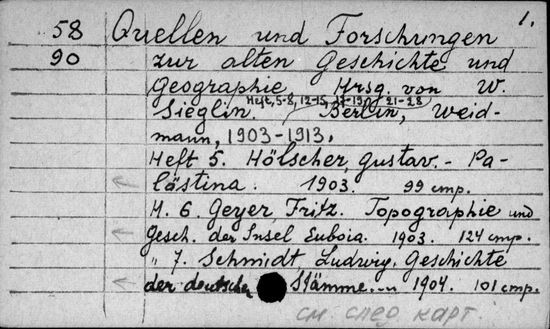 1.
58 Quellen und Forschungen
90 zur alten Geschichte und
Geographie. Hrsg. von W.
Heft, 5-8, 12-15, 17-19, 21-28
Sieglin. Berlin, Weid-
mann, 1903-1913.
Heft 5. Hölscher, Gustav. - Pa-
lästina. 1903. 99 стр.
H. 6. Geyer, Fritz. Topographie und
Gesch. der Insel Euboia. 1903. 124 стр.
" 7. Schmidt Ludwig. Geschichte
der deutschen Stämme... 1904. 101 стр.
см. след. карт.